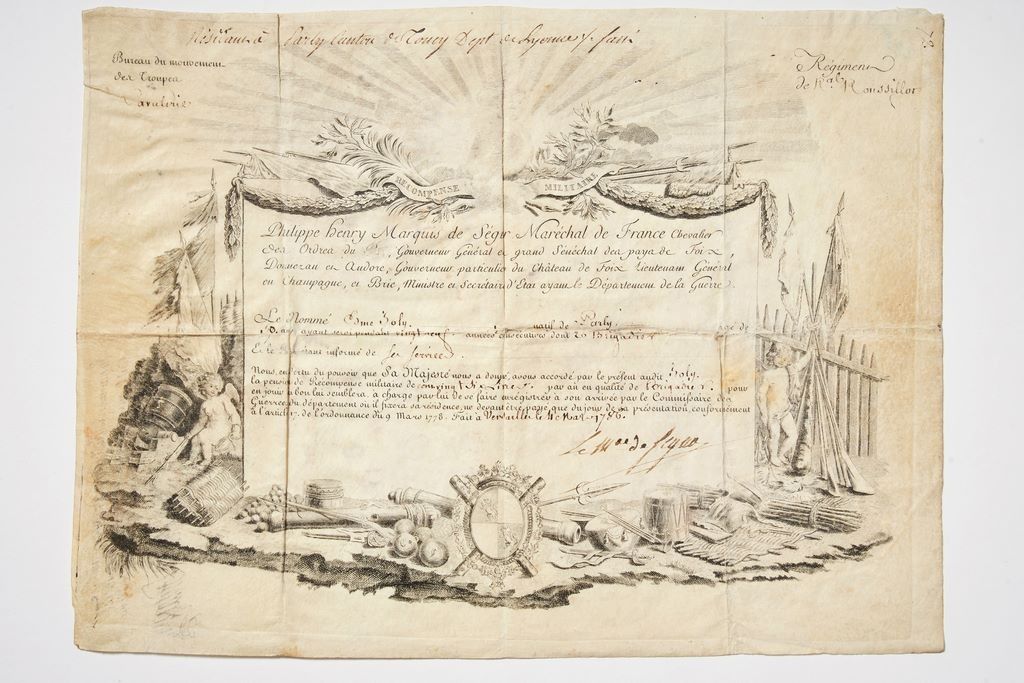 Résidant à Parly Canton de Toucy Dept de Lyonne
Bureau du mouvement
des Troupes
Cavalerie
Régiment
de Ral Roussillon
RECOMPENSE MILITAIRE
Philippe henry Marquis de Ségur Maréchal de France Chevalier
des Ordres du Roi, Gouverneur Général et grand Sénéchal des pays de Foix
Donnezan et Andore, Gouverneur particulier du Château de Foix Lieutenant Général
en Champagne, et Brie, Ministre et Secretaire d'Etat ayant le Département de la Guerre.
Le Nommé Edme Joly natif de Parly agé de
ans ayant servi pendant vingt neuf années consécutives dont 20 Brigadier
Et le Roi étant informé de ses services
Nous, en vertu du pouvoir que Sa Majesté nous a donné, avons accordé par le présent audit Joly
la pension de Récompense militaire de par an en qualité de brigadier pour
en jouir où bon lui semblera, à charge par lui de se faire enregistrer à son arrivée par le Commissaire des
Guerres du département où il fixera sa résidence, ne devant être payé que du jour de sa présentation, conformément
à l'article de l'ordonnance du 9 Mars 1778. Fait à Versailles le Mai 1786.
Le Mal de Ségur